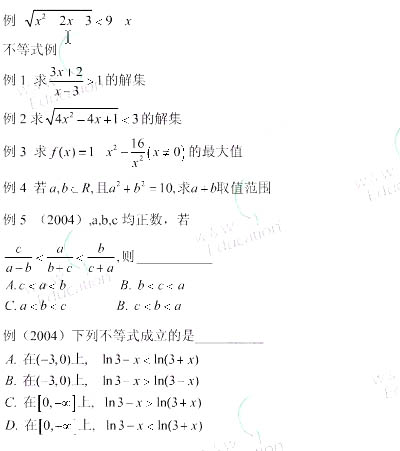 例 √(x² 2x 3) < 9 x
不等式例
例 1 求 (3x+2)/(x-3) > 1 的解集
例 2 求 √(4x²-4x+1) < 3 的解集
例 3 求 f(x)=1 x² - 16/x² (x≠0) 的最大值
例 4 若 a,b⊂R, 且 a²+b²=10, 求 a+b 取值范围
例 5 （2004）,a,b,c 均正数，若
c/(a-b) < a/(b+c) < b/(c+a), 则____________
A. c<a<b B. b<c<a
C. a<b<c B. c<b<a
例（2004）下列不等式成立的是____________
A. 在(-3,0)上, ln3-x<ln(3+x)
B. 在(-3,0)上, ln3-x>ln(3-x)
C. 在[0,-∞]上, ln3-x>ln(3+x)
D. 在[0,-∞]上, ln3-x<ln(3+x)